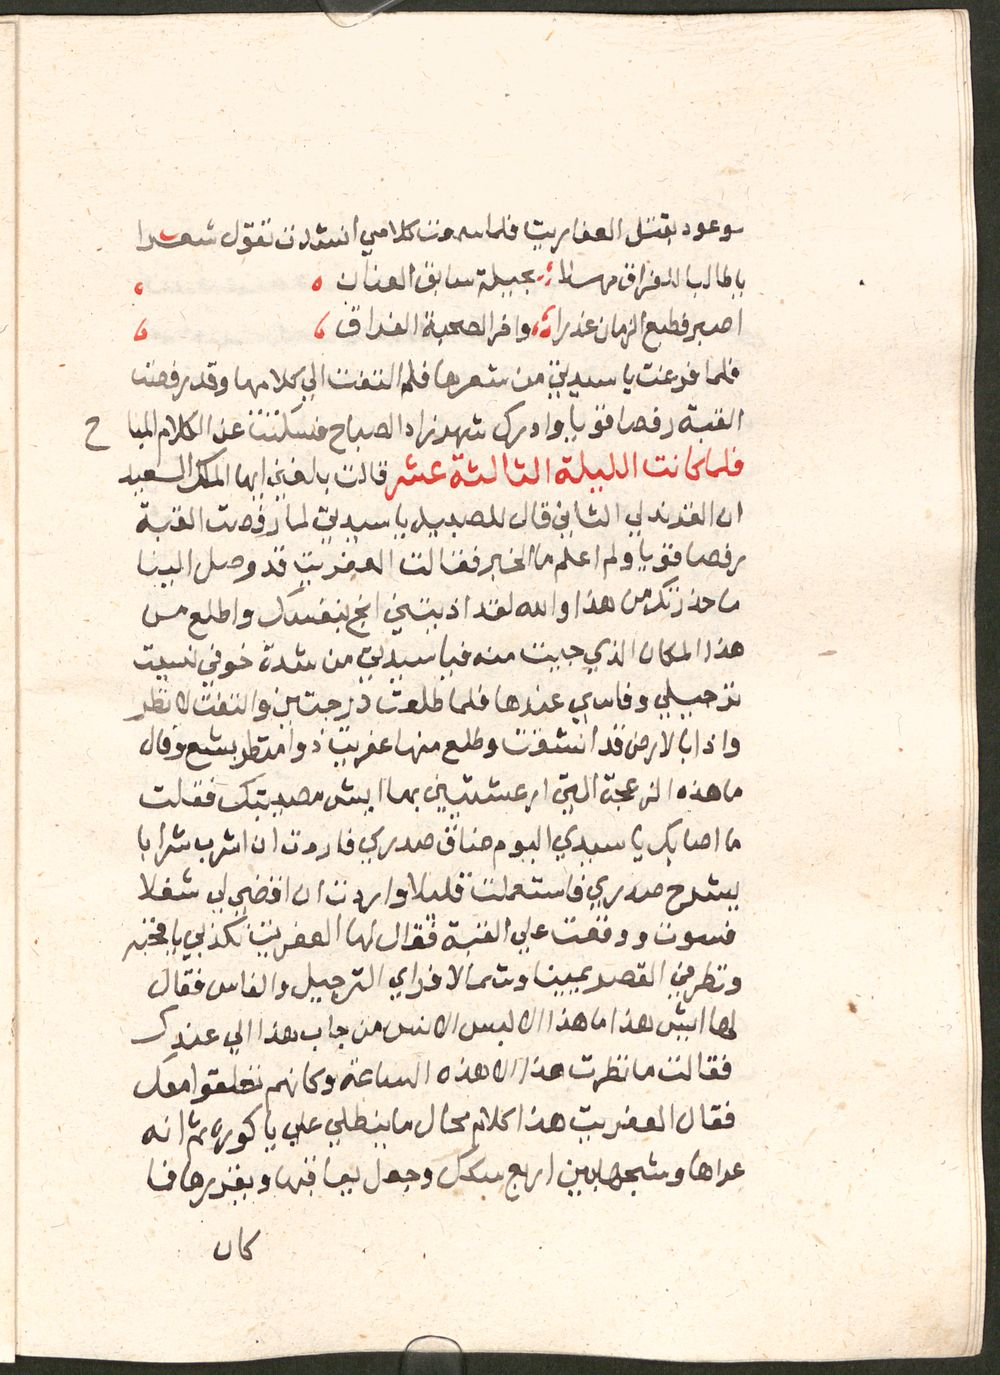 موعود بقتل العفاريت فلما سمعت كلامي انشدت تقول شعرا
يا طالبا للفراق مهلا بحيلة سابق العنان
اصبر فطبع الزمان غدرا واخر الصحبة الفراق
فلما فرغت يا سيدتي من شعرها فلم التفت الي كلامها وقد رفصت
القبة رفصا قويا وادرك شهرزاد الصباح فسكتت عن الكلام المبا
ح
فلما كانت الليلة الثالثة عشر قالت بلغني ايها الملك السعيد
ان القرندلي الثاني قال للصبية يا سيدتي لما رفصت القبة
رفصا قويا ولم اعلم ما الخبر فقالت العفريت قد وصل الينا
ما حذرتك من هذا والله لقد اذيتني انج بنفسك واطلع من
هذا المكان الذي جيت منه فيا سيدتي من شدة خوفي نسيت
ترجيلي وفاسي عندها فلما طلعت درجتين والتفت لانظر
واذا بالارض قد انشقت وطلع منها عفريت ذو منظر بشع وقال
ما هذه الزعجة التي ارعشتيني بها ايش مصيبتك فقلت
ما اصابك يا سيدي اليوم ضاق صدري فاردت ان اشرب شرابا
يشرح صدري فاستعملت قليلا واردت ان اقضي لي شغلا
فسهوت ووقعت علي القبة فقال لها العفريت تكذبي يا قحبة
ونظر في القصر يمينا وشمالا فراي الترجيل والفاس فقال
لها ايش هذا ما هذا الا لبس الانس من جاب هذا الي عندك
فقالت ما نظرت هذا الا هذه الساعة وكانهم تعلقوا معك
فقال العفريت هذا كلام محال ما ينطلي علي يا عاهرة ثم انه
عراها وشبحها بين اربع سكك وجعل يعاقبها ويقررها فما
كان